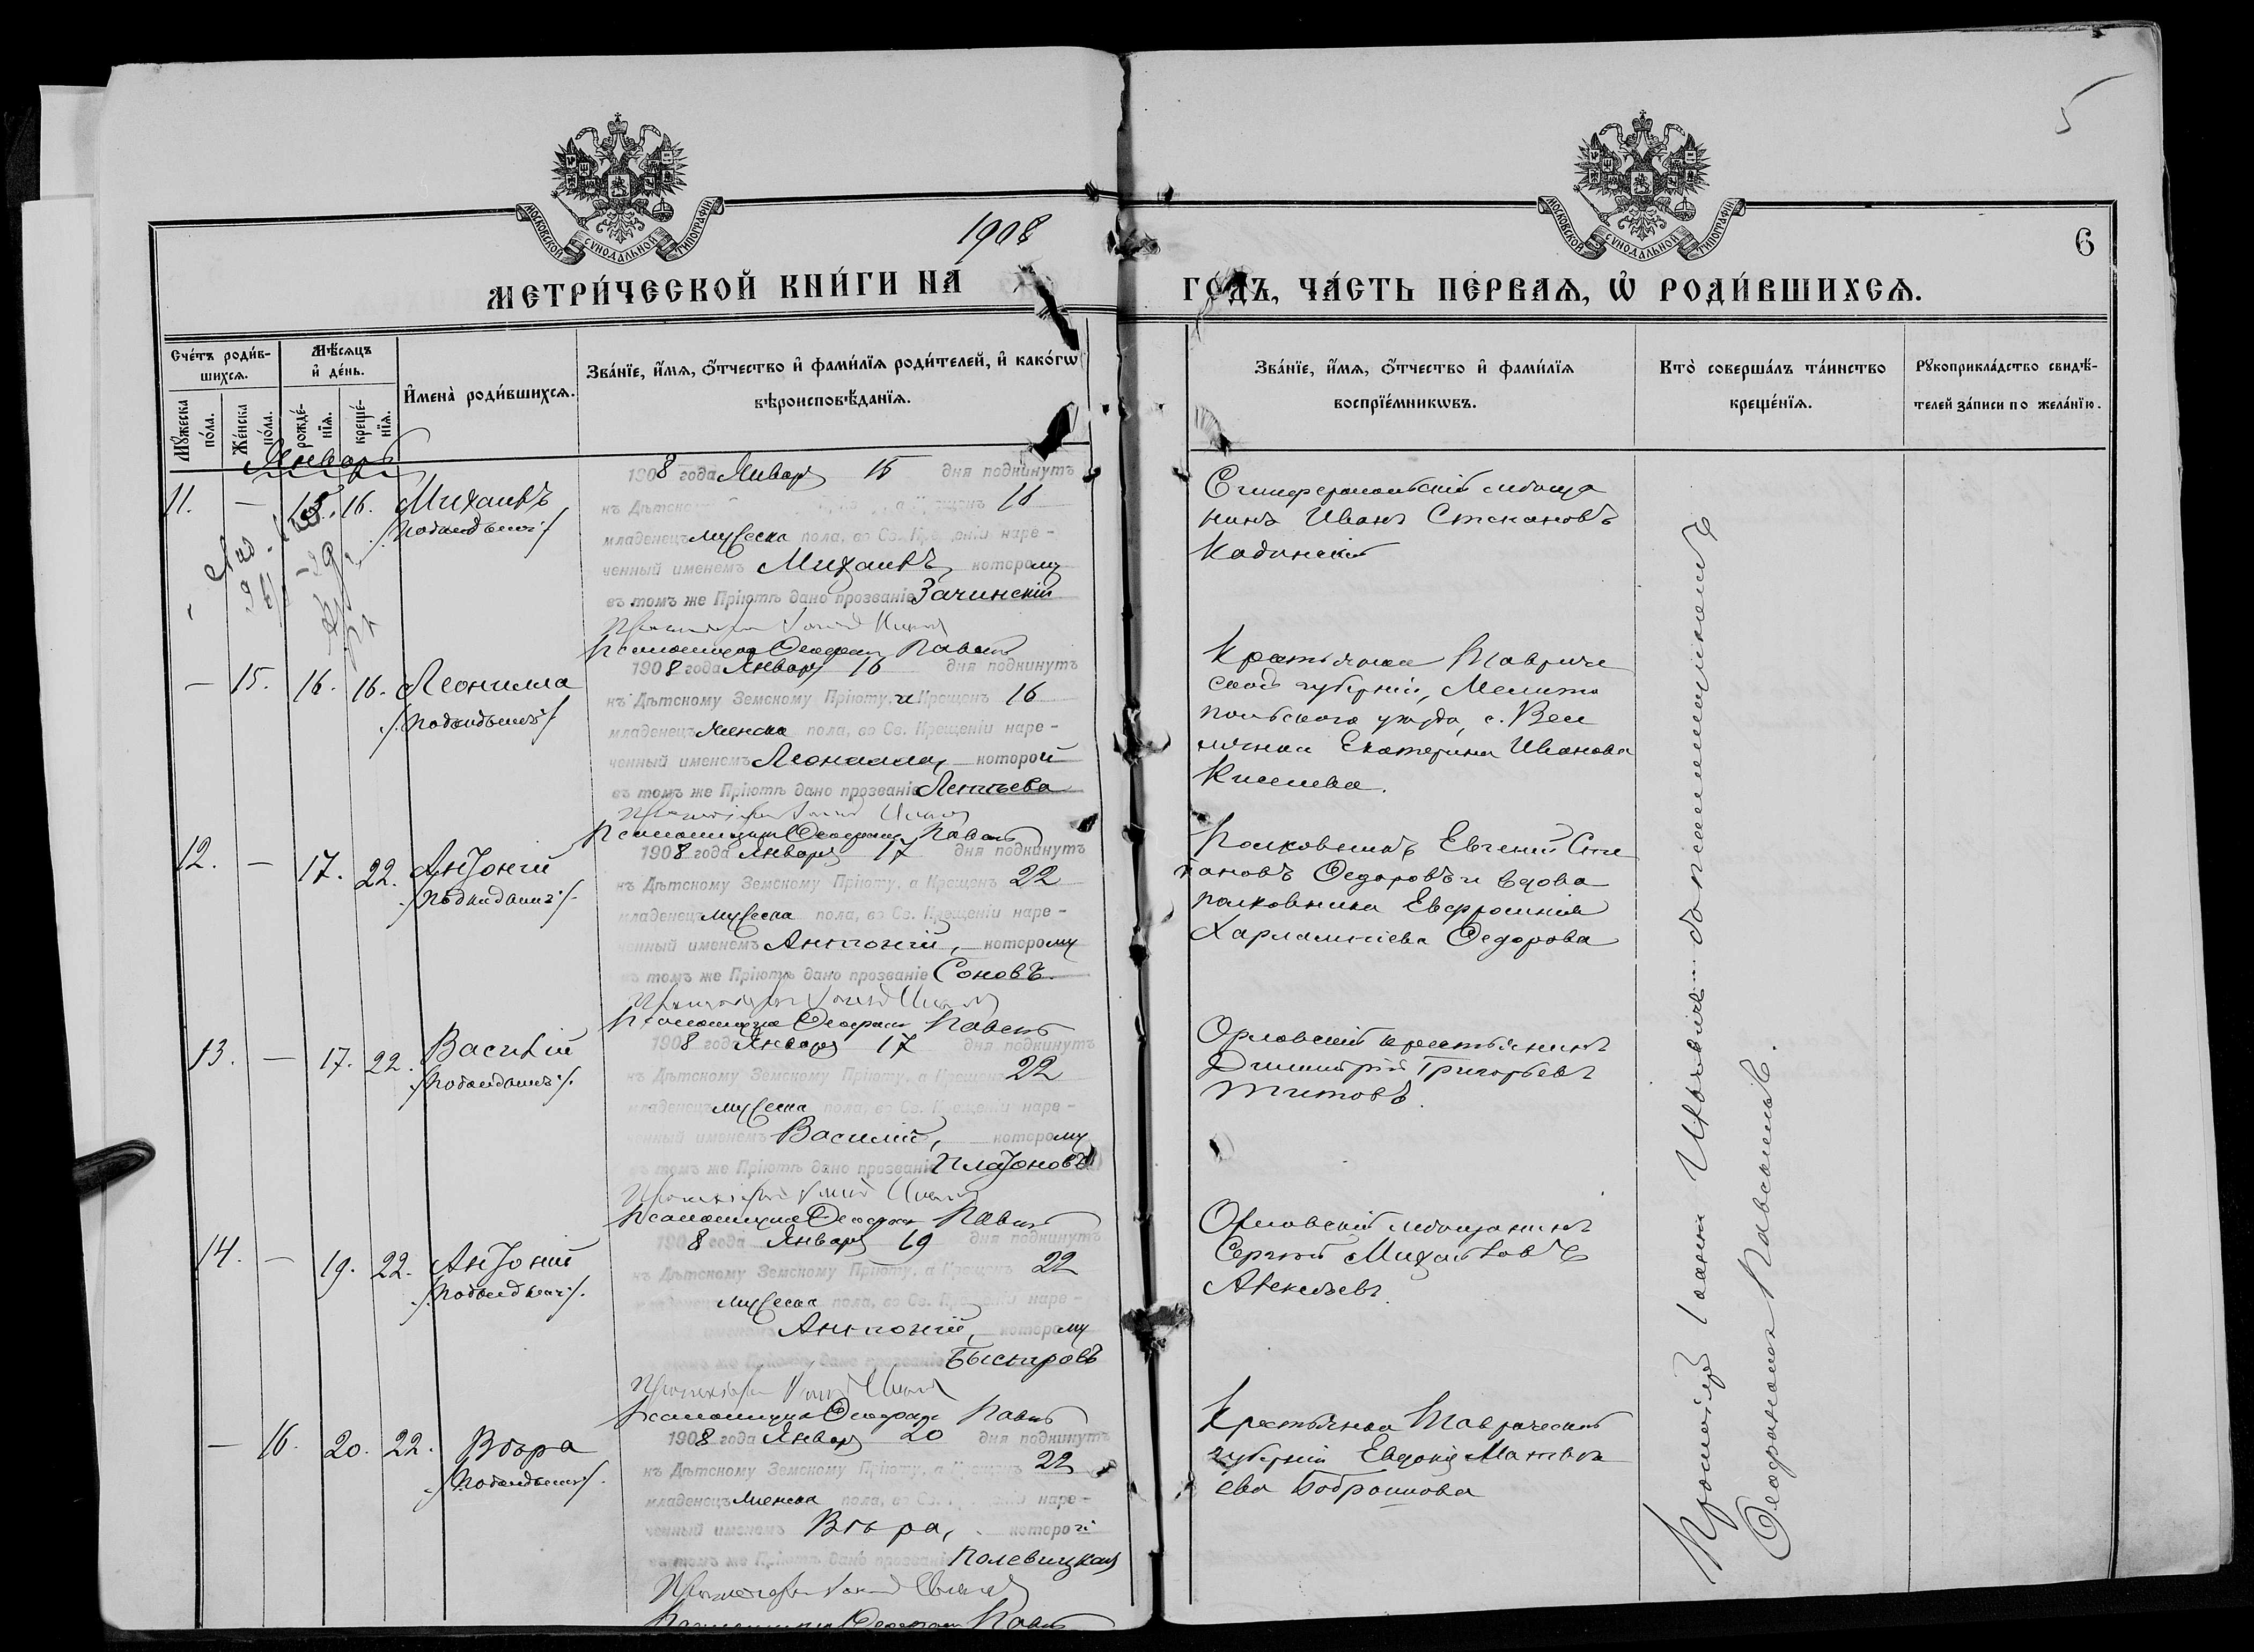 5
МОСКОВСКОЙ СѴНОДАЛЬНОЙ ТИПОГРАФІИ
МОСКОВСКОЙ СѴНОДАЛЬНОЙ ТИПОГРАФІИ
1908
6
МЕТРИ́ЧЕСКОЙ КНИ́ГИ НА̀
ГО́ДЪ, ЧА́СТЬ ПЕ́РВАѦ, Ѡ҆ РОДИ́ВШИХСѦ.
Сче́тъ роди́в-
шихсѧ.
Мꙋ́жеска по́ла.
Же́нска по́ла.
Мѣ́сѧцъ
и҆ де́нь.
рожде́-
нїѧ.
креще́-
нїѧ.
И҆мена̀ роди́вшихсѧ.
Зва́нїе, и҆́мѧ, ѻ҆́тчество и҆ фами́лїѧ роди́телей, и҆ како́гѡ
вѣроисповѣ́данїѧ.
Зва́нїе, и҆́мѧ, ѻ҆́тчество и҆ фами́лїѧ
воспрїе́мникѡвъ.
Кто̀ соверша́лъ та́инство
креще́нїѧ.
Рꙋкоприкла́дство свидѣ́-
телей за́писи по жела́нїю.
Январь
11. — 15. 16. Михаилъ
/:подкидышъ:/
1908 года Января 15 дня подкинутъ
къ Дѣтско а Крещенъ 16
младенецъ мужеска пола, во Св. Крещеніи наре-
ченный именемъ Михаилъ, которому
въ томъ же Пріютѣ дано прозваніе Зачинскій
Протоіерей
Псаломщикъ
Симферопольскій мѣща
нинъ Иванъ Степановъ
Кадинскій
— 15. 16. 16. Леонилла
/:подкидышъ:/
1908 года Января 16 дня подкинутъ
къ Дѣтскому Земскому Пріюту, и Крещенъ 16
младенецъ женска пола, во Св. Крещеніи наре-
ченный именемъ Леонилла, которой
въ томъ же Пріютѣ дано прозваніе
Протоіерей
Псаломщикъ
Крестьянка Тавриче
ской губерніи, Мелито
польскаго уѣзда, с. Ве
Екатерина Иванова
Киселева.
12. — 17. 22. Антоній
/:подкидышъ:/
1908 года Января 17 дня подкинутъ
къ Дѣтскому Земскому Пріюту, а Крещенъ 22
младенецъ мужеска пола, во Св. Крещеніи наре-
ченный именемъ Антоній, которому
въ томъ же Пріютѣ дано прозваніе Соновъ.
Протоіерей
Псаломщикъ
Полковникъ Евгеній Сте
пановъ Ѳедоровъ и вдова
полковника Евфросинія
Харлампіева Ѳедорова
13. — 17. 22. Василій
/:подкидышъ:/
1908 года Января 17 дня подкинутъ
къ Дѣтскому Земскому Пріюту, а Крещенъ 22
младенецъ мужеска пола, во Св. Крещеніи наре-
ченный именемъ Василій, которому
въ томъ же Пріютѣ дано прозваніе Платоновъ
Протоіерей
Псаломщикъ
Орловскій крестьянинъ
Димитрій Григорьевъ
Титовъ.
14. — 19. 22. Антоній
/:подкидышъ:/
1908 года Января 19 дня подкинутъ
къ Дѣтскому Земскому Пріюту, а Крещенъ 22
младенецъ мужеска пола, во Св. Крещеніи наре-
именемъ Антоній, которому
въ томъ же Пріютѣ дано прозваніе Быстровъ
Протоіерей
Псаломщикъ
Орловскій мѣщанинъ
Сергѣй Михайловъ
Алексѣевъ.
— 16. 20. 22. Вѣра
/:подкидышъ:/
1908 года Января 20 дня подкинутъ
къ Дѣтскому Земскому Пріюту, а Крещенъ 22
младенецъ женска пола, во Св. Крещеніи наре-
ченный именемъ Вѣра, которой
въ томъ же Пріютѣ дано прозваніе Полевицкая
Протоіерей
Псаломщикъ
Крестьянка Таврической
губерніи Евдокія Матвѣ
ева Бобровникова
Протоіерей Іоаннъ съ псаломщикомъ
Ѳеофаномъ Павскимъ.